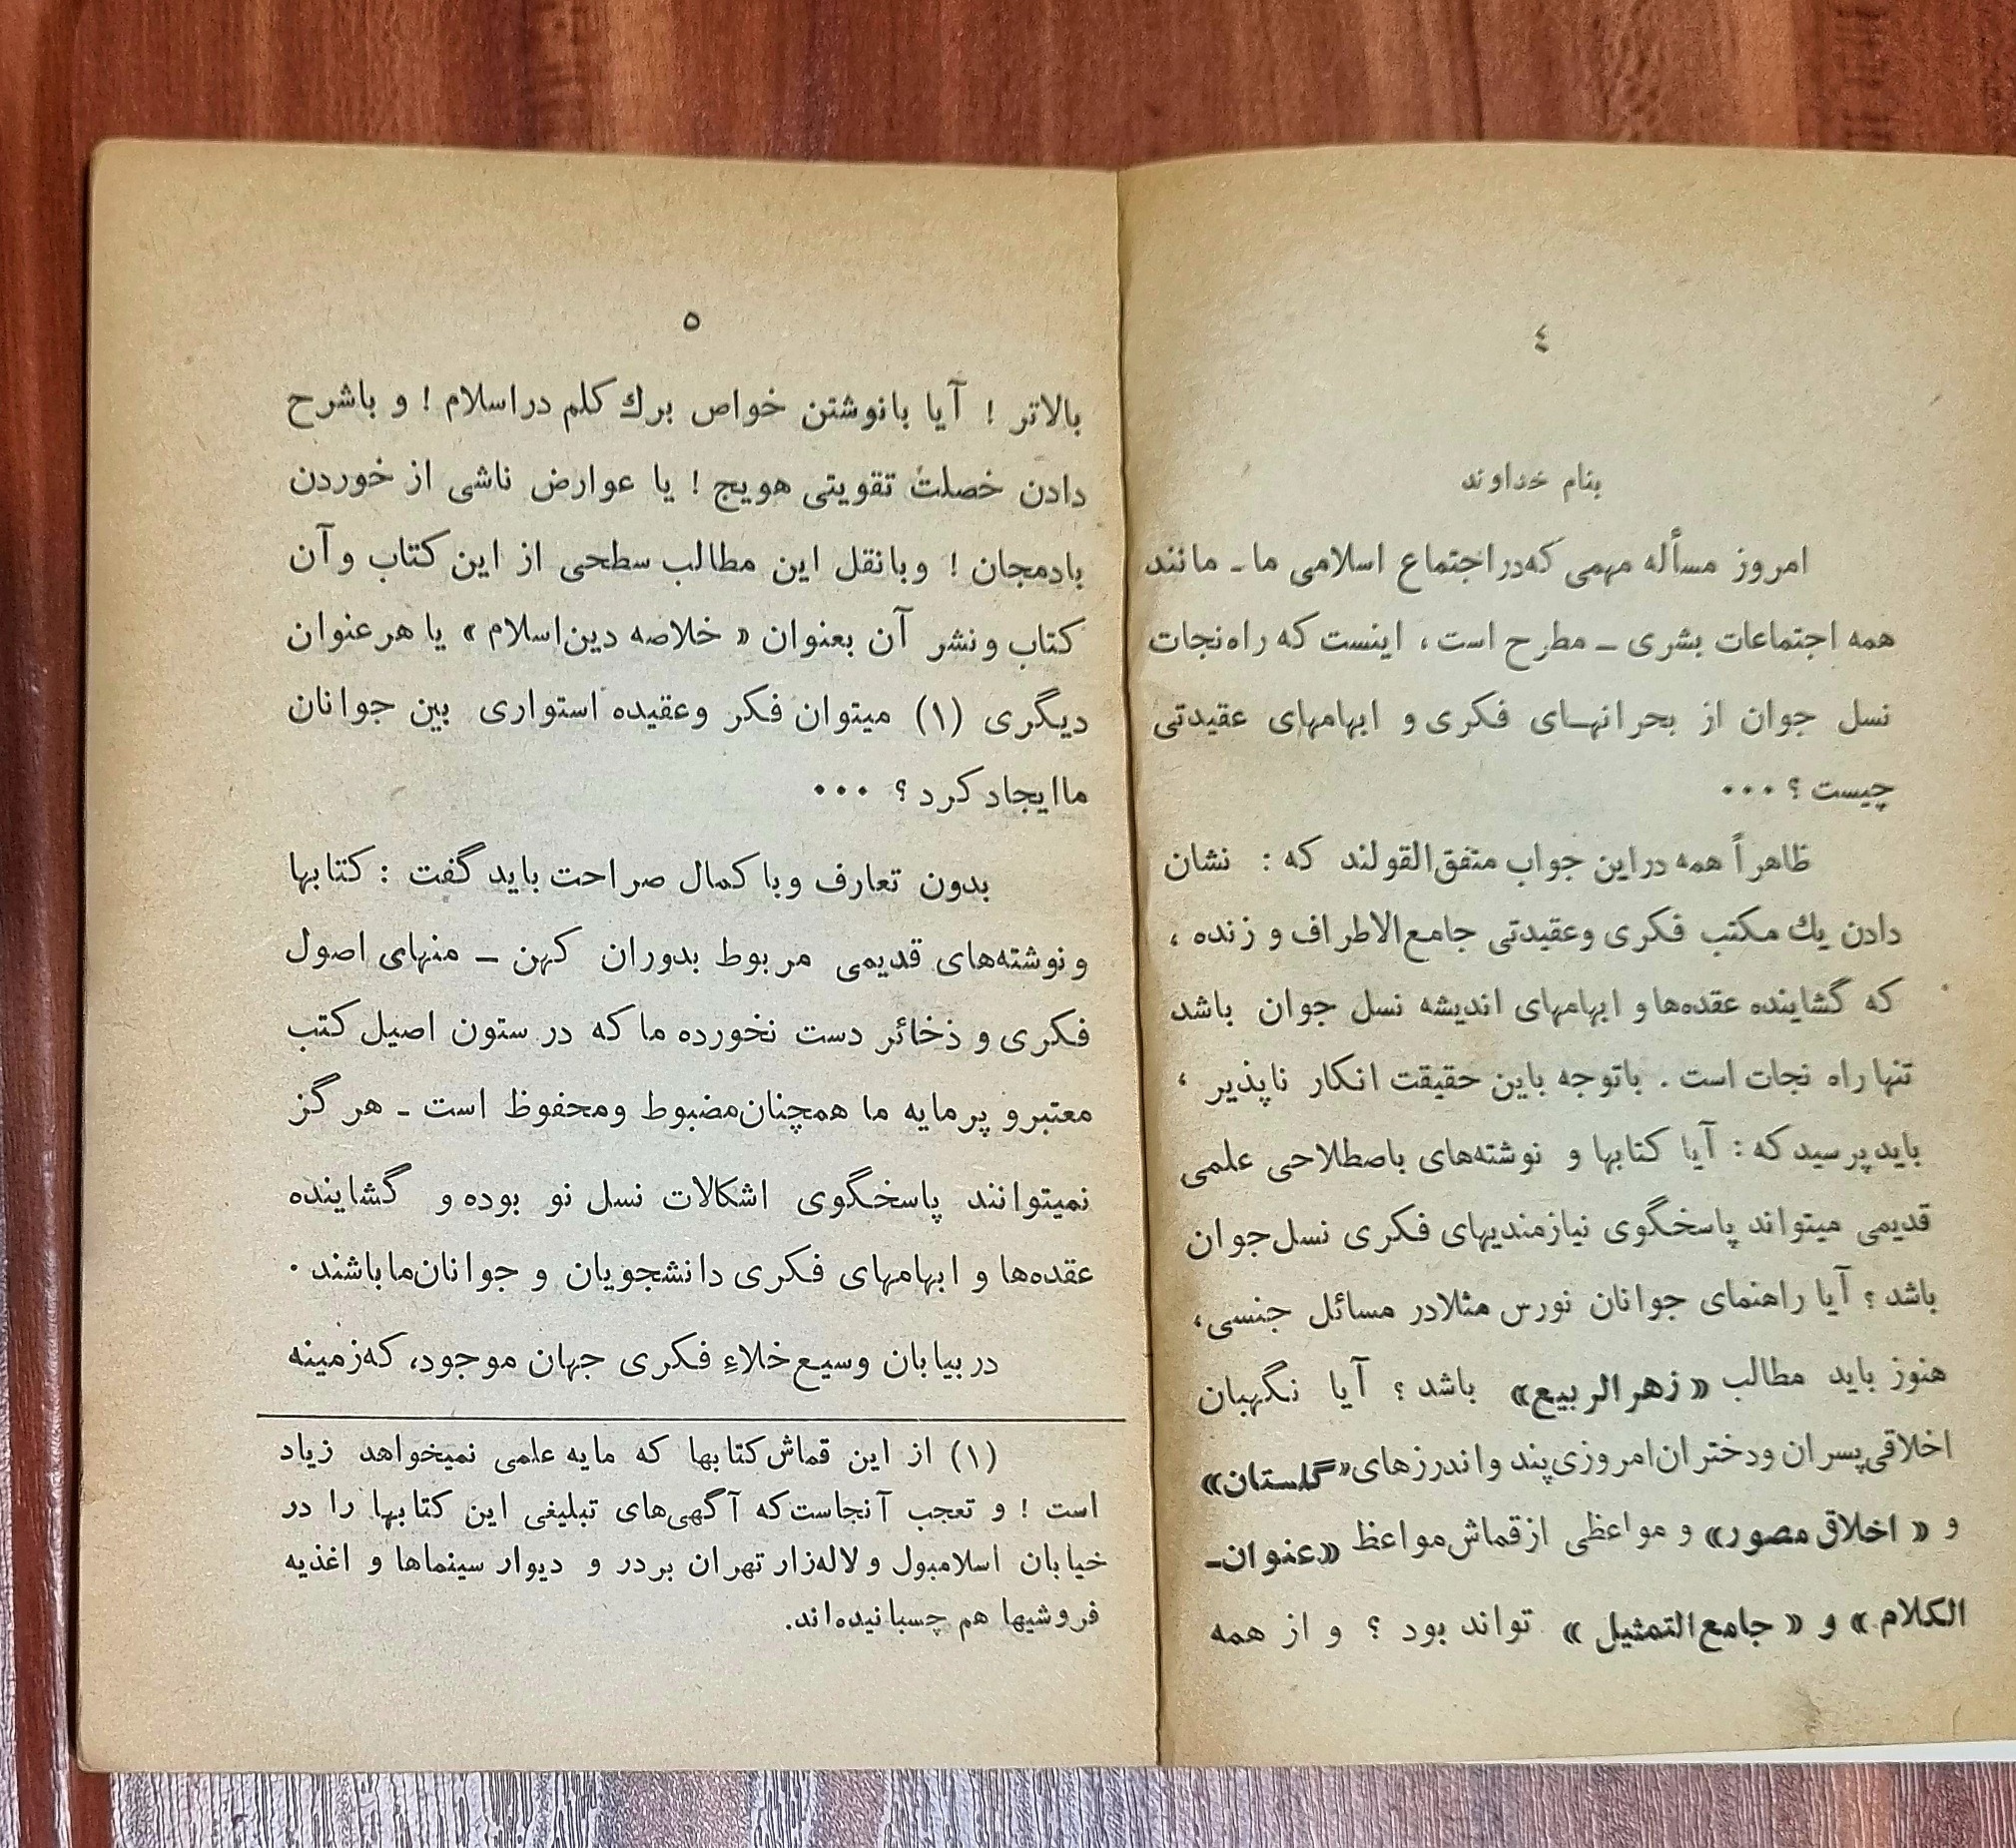 ٤
بنام خداوند
امروز مسأله مهمی که در اجتماع اسلامی ما ـ مانند
همه اجتماعات بشری ـ مطرح است، اینست که راه نجات
نسل جوان از بحرانهـای فکری و ابهامهای عقیدتی
چیست؟ ...
ظاهراً همه در این جواب متفق‌القولند که : نشان
دادن یك مکتب فکری و عقیدتی جامع‌الاطراف و زنده ،
که گشاینده عقده‌ها و ابهامهای اندیشه نسل جوان باشد
تنها راه نجات است . باتوجه باین حقیقت انکار ناپذیر ،
باید پرسید که : آیا کتابها و نوشته‌های باصطلاحی علمی
قدیمی میتواند پاسخگوی نیازمندیهای فکری نسل جوان
باشد؟ آیا راهنمای جوانان نورس مثلا در مسائل جنسی،
هنوز باید مطالب «زهرالربیع» باشد؟ آیا نگهبان
اخلاقی پسران و دختران امروزی پند و اندرزهای «گلستان»
و «اخلاق مصور» و مواعظی از قماش مواعظ «عنوان‌ـ
الکلام» و «جامع‌التمثیل» تواند بود؟ و از همه
٥
بالاتر ! آیا بانوشتن خواص برك کلم در اسلام ! و باشرح
دادن خصلت تقویتی هویج ! یا عوارض ناشی از خوردن
بادمجان ! و بانقل این مطالب سطحی از این کتاب و آن
کتاب و نشر آن بعنوان «خلاصه دین اسلام» یا هر عنوان
دیگری (۱) میتوان فکر و عقیده استواری بین جوانان
ما ایجاد کرد؟ ...
بدون تعارف و با کمال صراحت باید گفت : کتابها
و نوشته‌های قدیمی مربوط بدوران کهن ـ منهای اصول
فکری و ذخائر دست نخورده ما که در ستون اصیل کتب
معتبر و پرمایه ما همچنان مضبوط و محفوظ است ـ هرگز
نمیتوانند پاسخگوی اشکالات نسل نو بوده و گشاینده
عقده‌ها و ابهامهای فکری دانشجویان و جوانان ما باشند .
در بیابان وسیع خلاء فکری جهان موجود، که زمینه
(۱) از این قماش کتابها که مایه علمی نمیخواهد زیاد
است ! و تعجب آنجاست که آگهی‌های تبلیغی این کتابها را در
خیابان اسلامبول و لاله‌زار تهران بر در و دیوار سینماها و اغذیه
فروشیها هم چسبانیده‌اند.